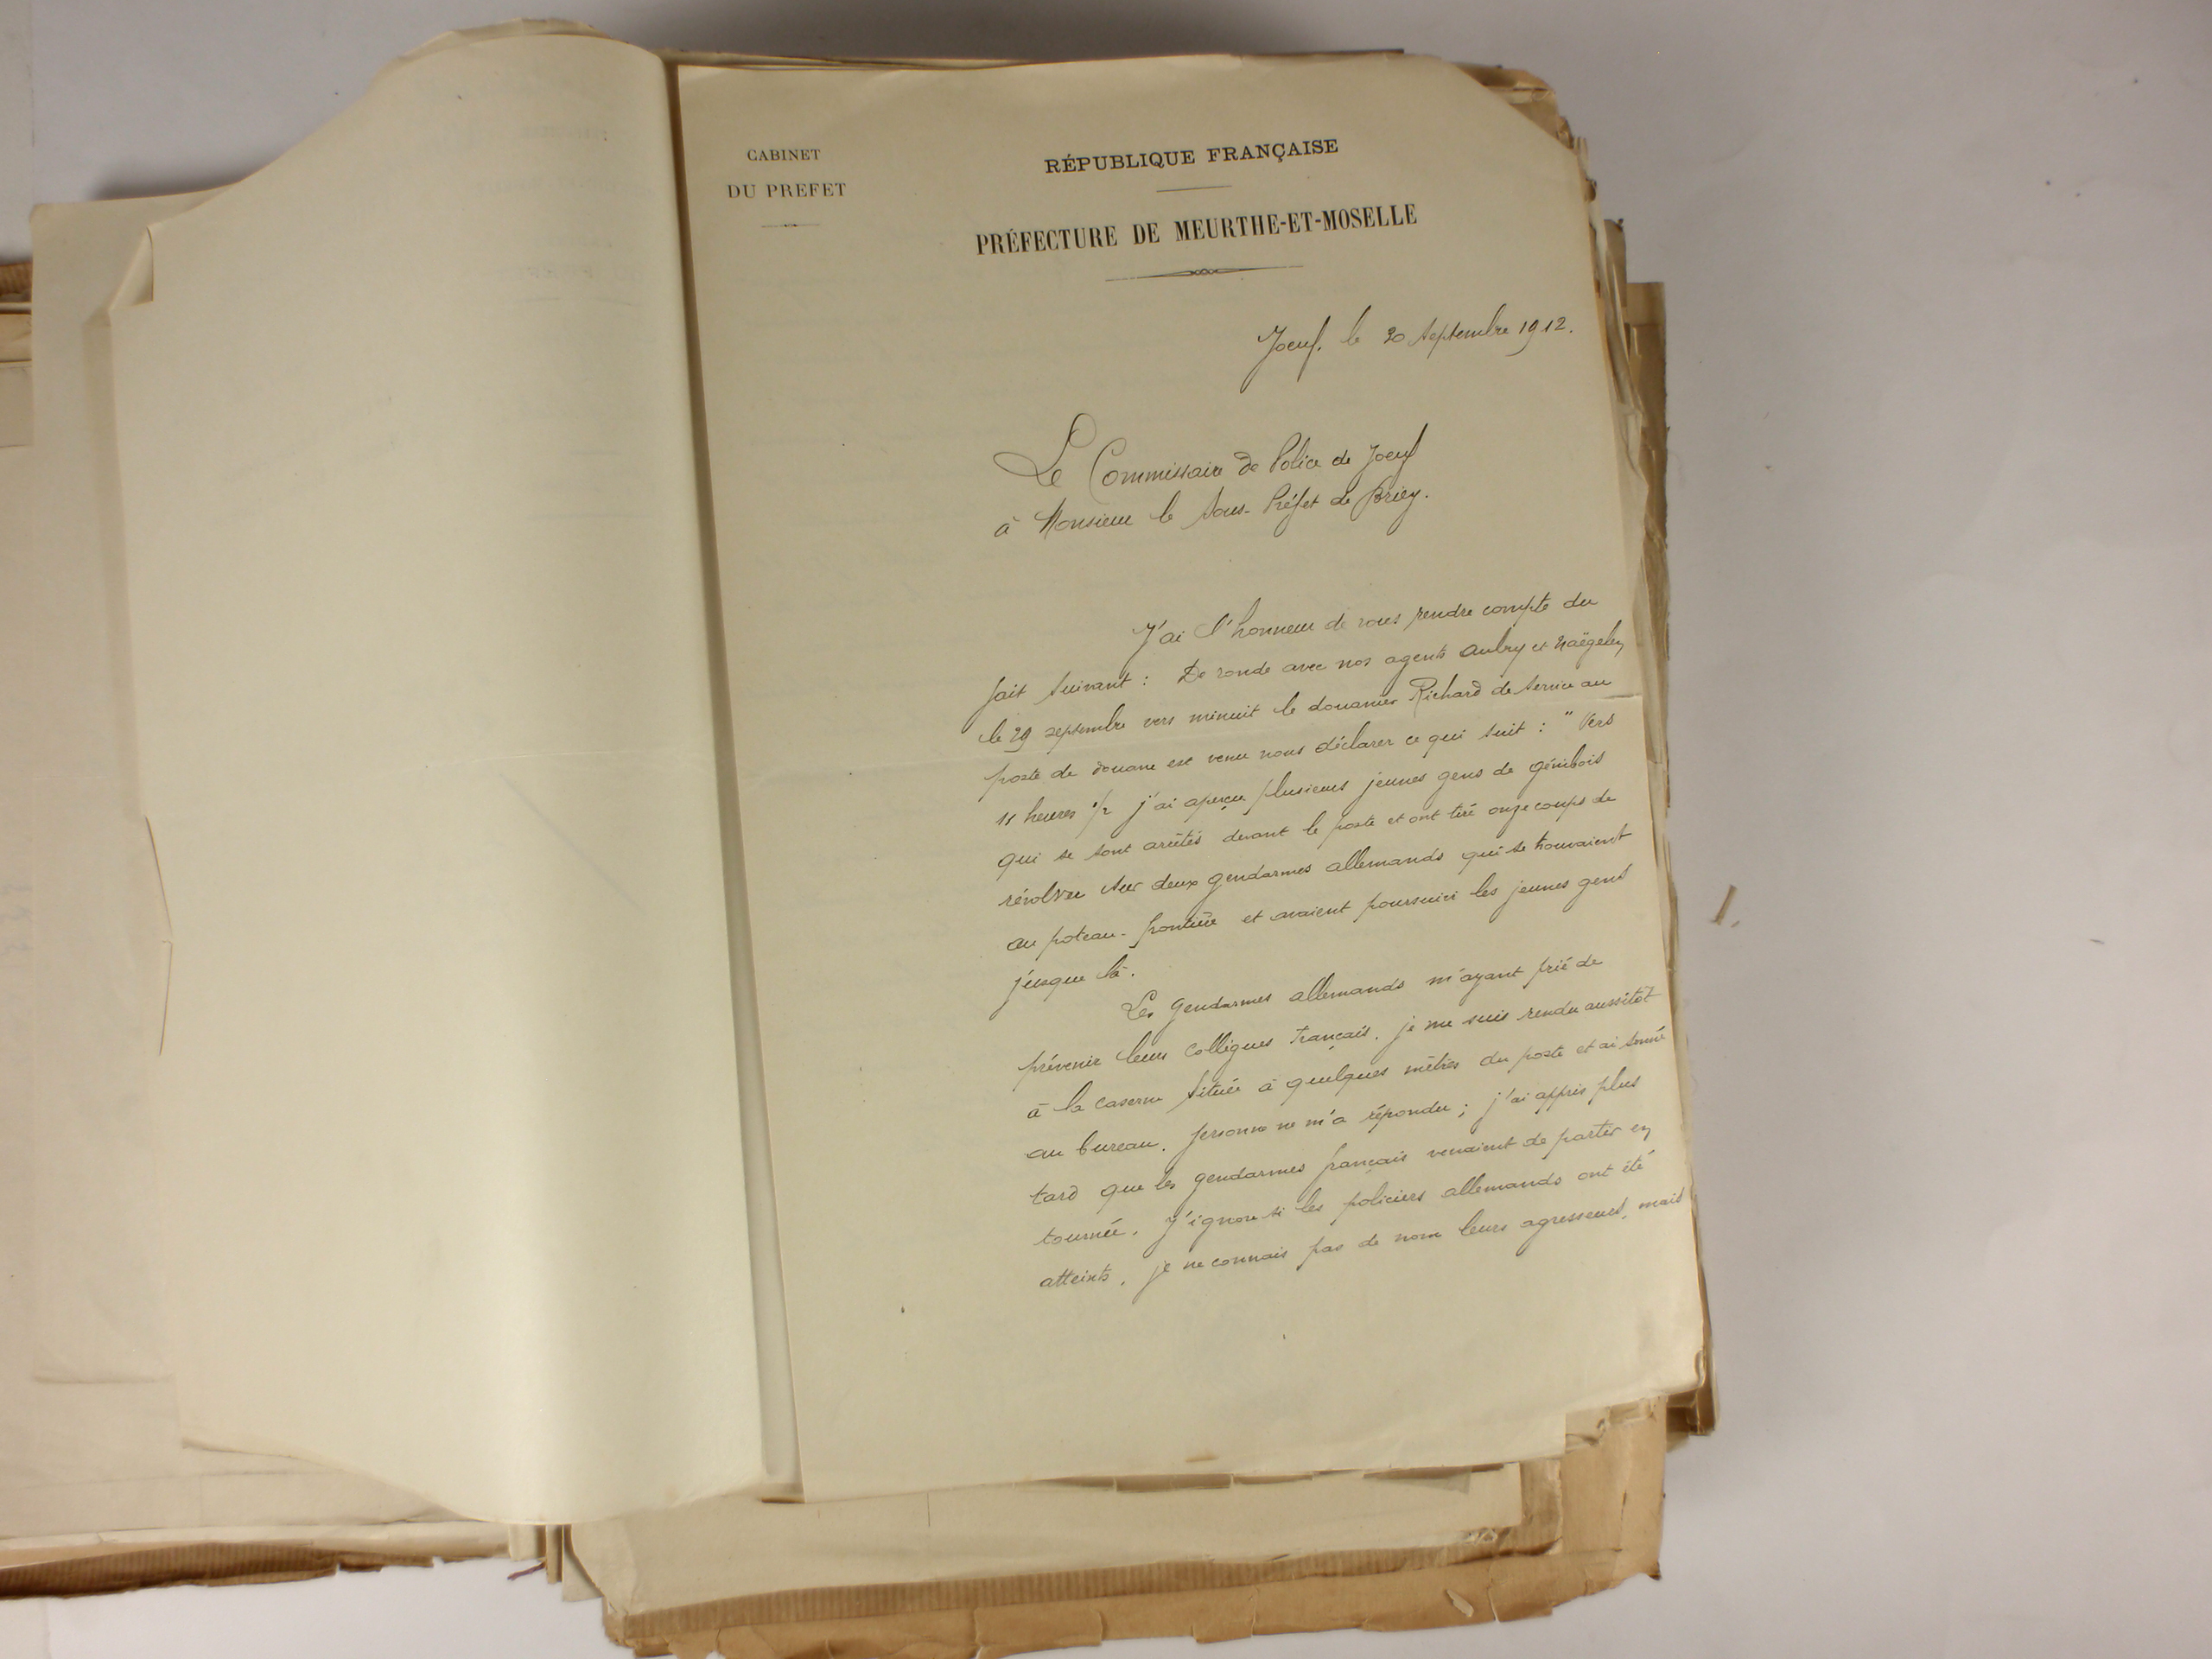 CABINET
DU PREFET
RÉPUBLIQUE FRANÇAISE
PRÉFECTURE DE MEURTHE-ET-MOSELLE
Joeuf. le 30 Septembre 1912.
Le Commissaire de Police de Joeuf
à Monsieur le Sous-Préfet de Briey.
J'ai l'honneur de vous rendre compte du
fait suivant : De ronde avec nos agents Aubry et Naëgelen
le 29 septembre vers minuit le douanier Richard de service au
poste de douane est venu nous déclarer ce qui suit : " Vers
11 heures 1/2 j'ai aperçu plusieurs jeunes gens de Génibois
qui se sont arrêtés devant le poste et ont tiré onze coups de
révolver sur deux gendarmes allemands qui se trouvaient
au poteau-frontière et avaient poursuivi les jeunes gens
jusque là.
Les gendarmes allemands m'ayant prié de
prévenir leurs collègues français, je me suis rendu aussitôt
à la caserne située à quelques mètres du poste et ai sonné
au bureau. personne ne m'a répondu ; j'ai appris plus
tard que les gendarmes français venaient de partir en
tournée. J'ignore si les policiers allemands ont été
atteints, je ne connais pas de nom leurs agresseurs, mais